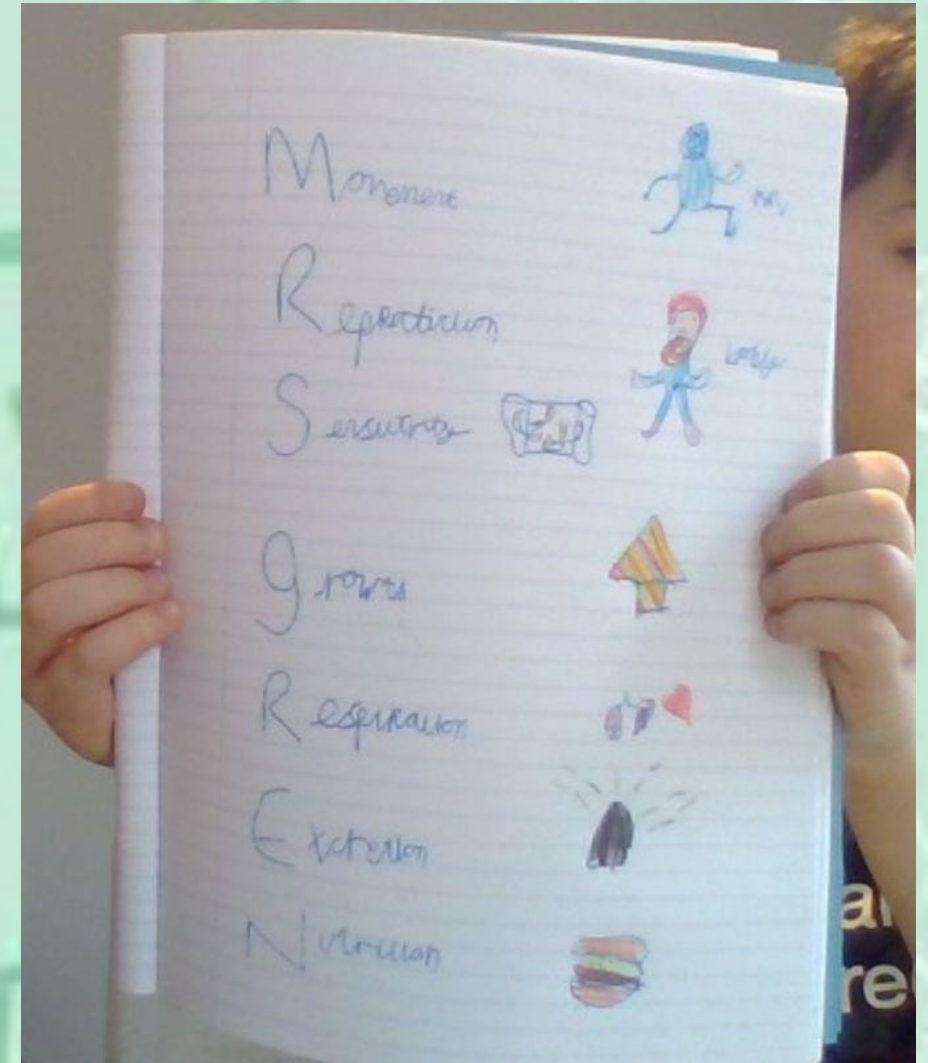 Movement
Reproduction
Sensitivity
growth
Respiration
Excretion
Nutrition